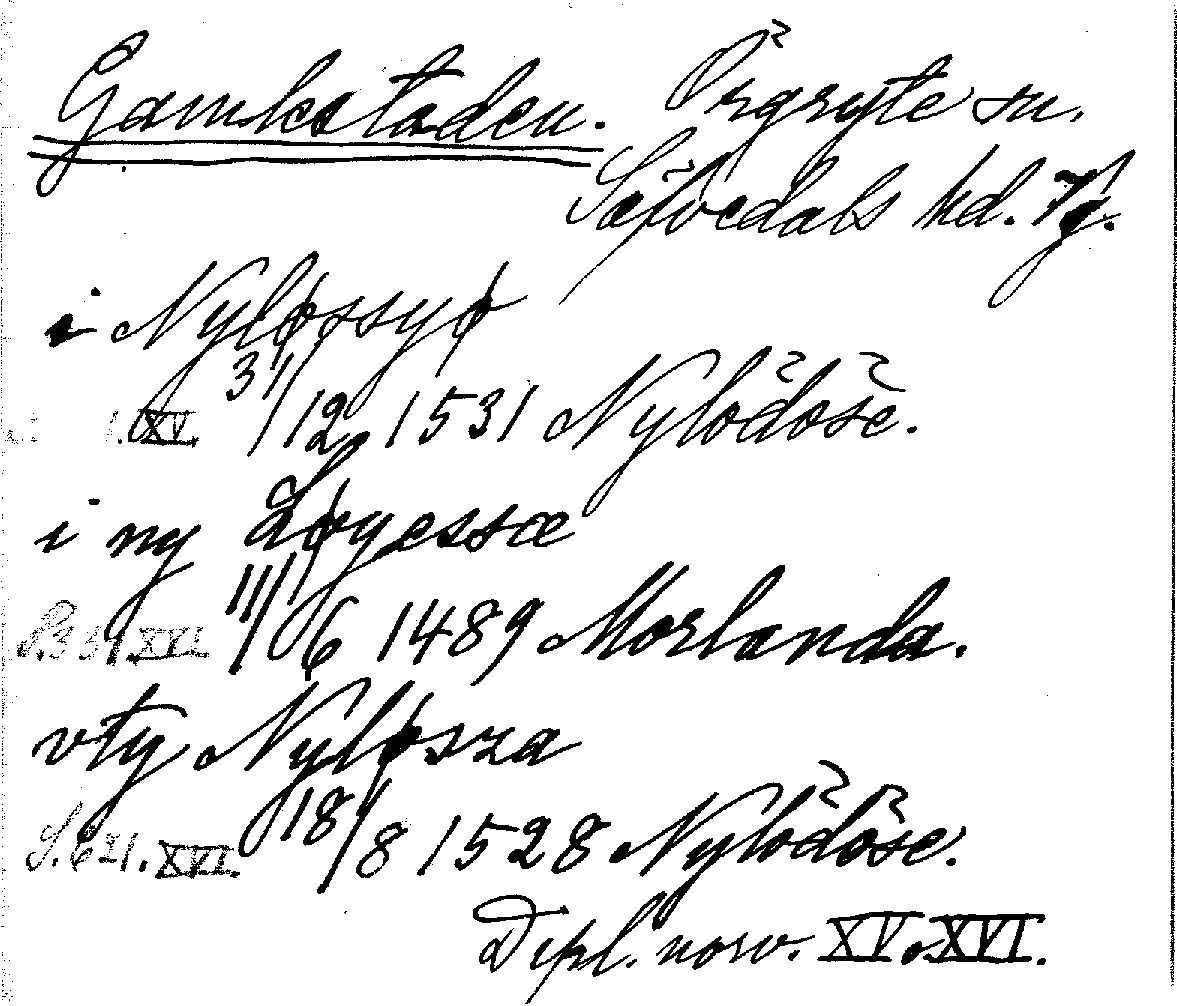 Gamlestaden. Örgryte sn.
Säfvedals hd. Vg.
i Nyløssyø
XV. 31/12 1531 Nylödöse.
i ny Løyessæ
S. 351. XVI. 11/6 1489 Morlanda.
vty Nyløsza
S. 621. XVI. 18/8 1528 Nylödöse.
Dipl. norv. XV o XVI.